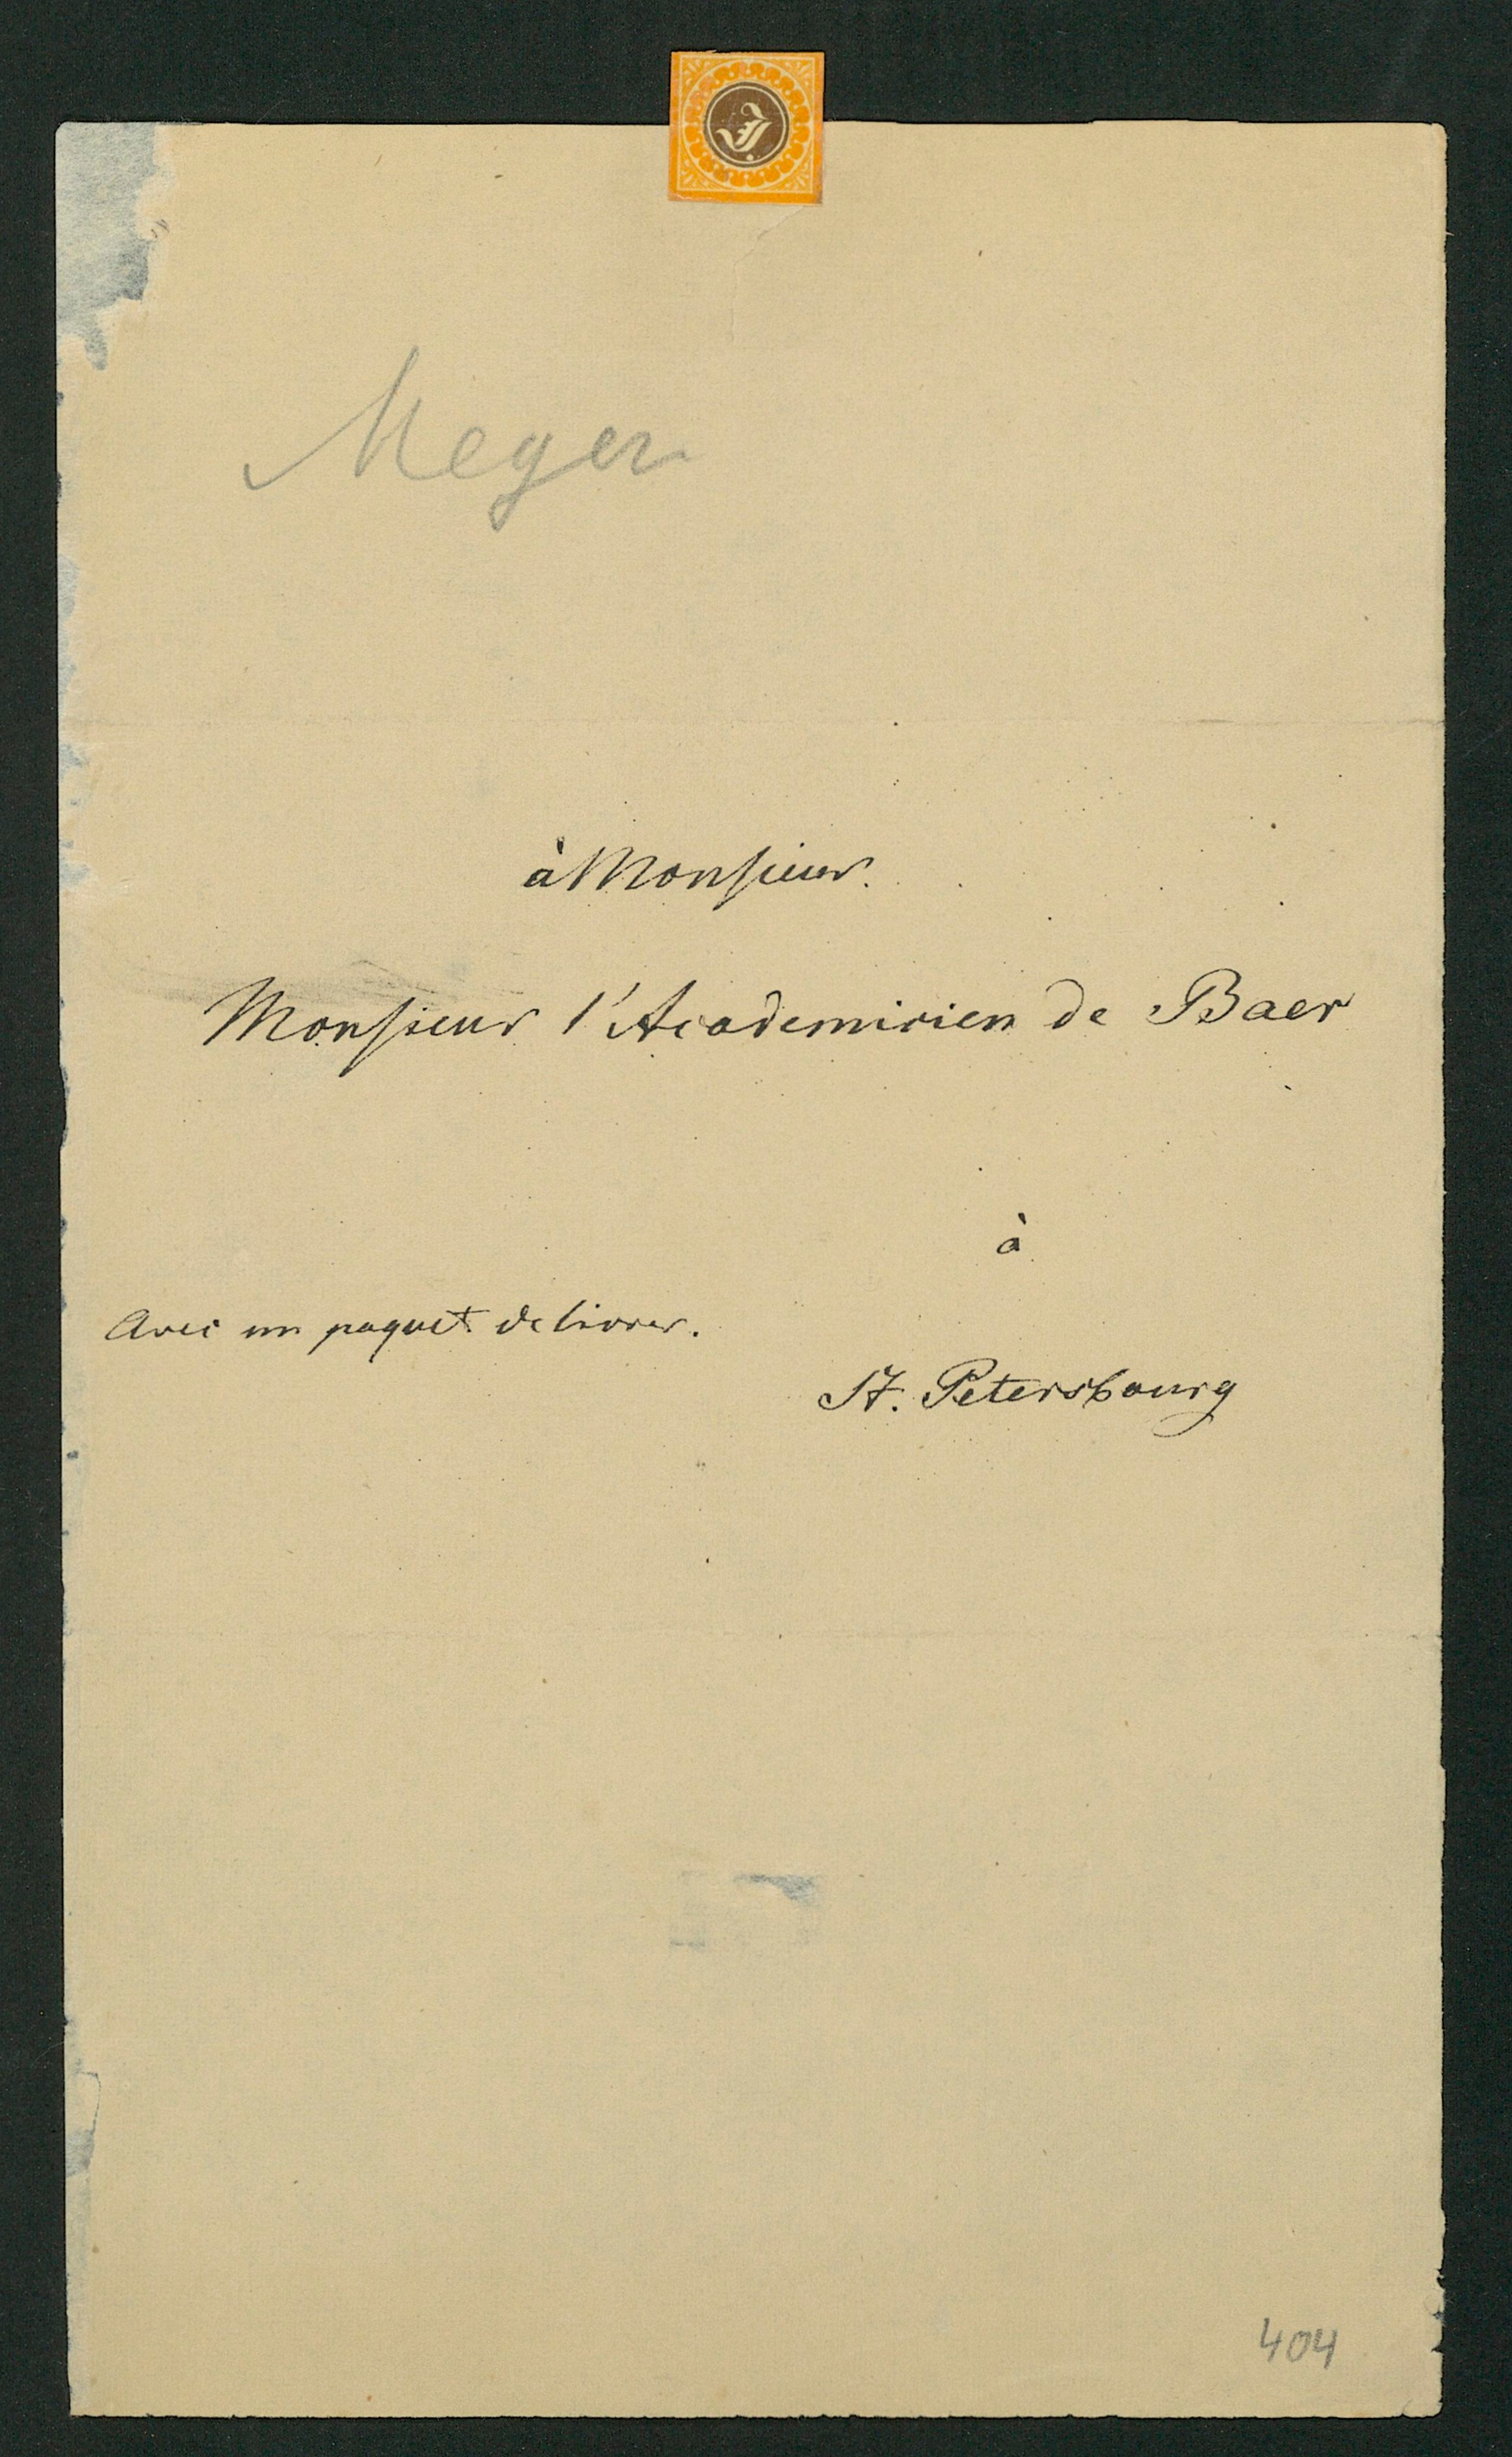 J
Meyer
à Monsieur.
Monsieur l'Academicien de Baer
à
Avec un paquet de livres.
St. Petersbourg
404